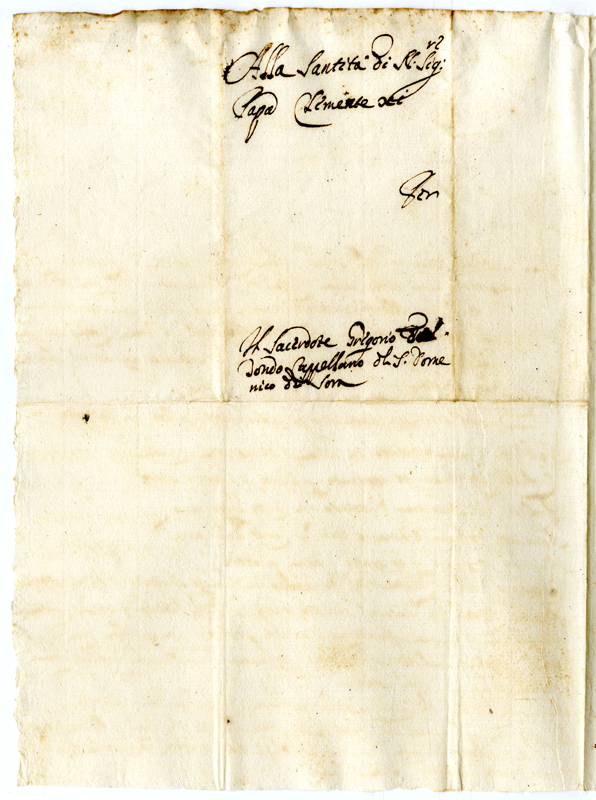 Alla Santità di N. Sig.re
Papa Clemente XI
Per
Il Sacerdote Gregorio
dondo Cappellano di S. Dome
nico di Sora